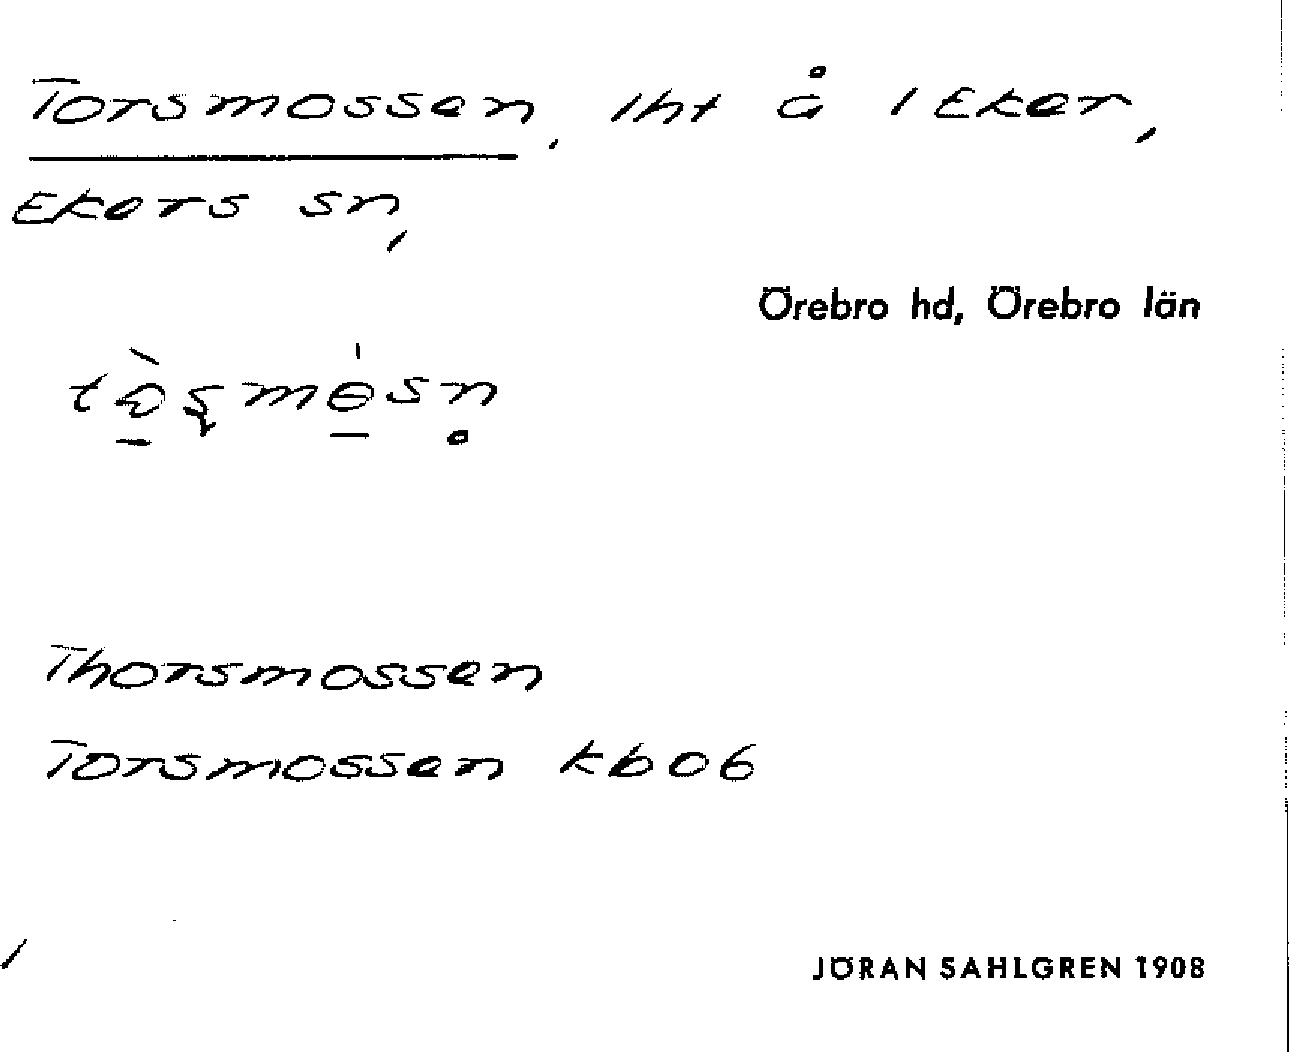 Torsmossen, lht å 1 Eker,
Ekers sn,
Örebro hd, Örebro län
Thorsmossen
Torsmossen kb06
JÖRAN SAHLGREN 1908